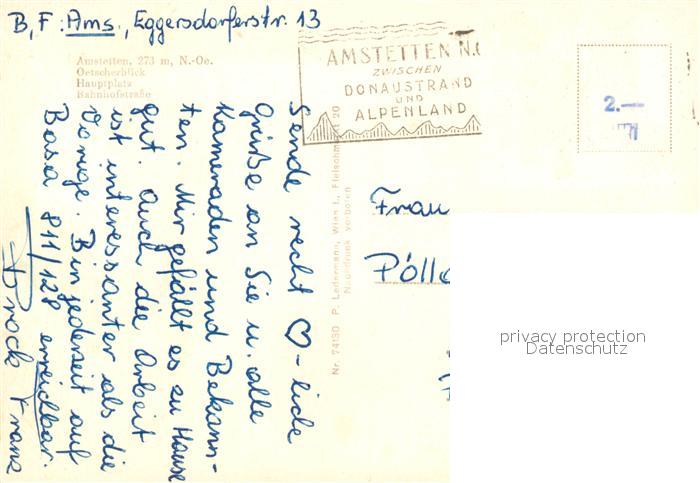 B, F: Ams., Eggersdorferstr. 13
Amstetten, 273 m, N.-Oe.
Oetscherblick
Hauptplatz
Bahnhofstraße
AMSTETTEN N.
ZWISCHEN
DONAUSTRAND
UND
ALPENLAND
2.—
Sende recht ♡-liche
Grüße an Sie u. alle
Kameraden und Bekann-
ten. Mir gefällt es zu Hause
gut. Auch die Arbeit
ist interessanter als die
Vorige. Bin jederzeit auf
Basa 811/128 erreichbar.
Brock Franz
Nr. 74130 P. Ledermann, Wien I., Fleischm 20
Nachdruck verboten
Frau
Pöll
privacy protection
Datenschutz